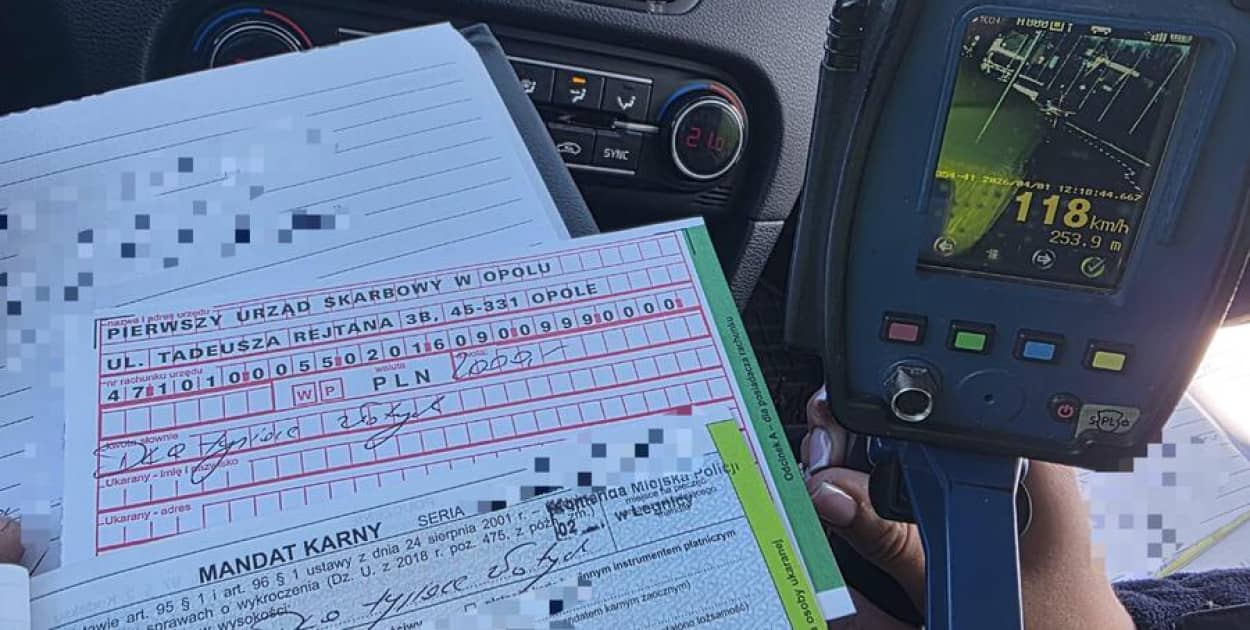 nazwa i adres urzędu
PIERWSZY URZĄD SKARBOWY W OPOLU
UL. TADEUSZA REJTANA 3B, 45-331 OPOLE
nr rachunku urzędu
47101000550201609009990000
waluta
WP PLN 2000,-
kwota słownie
Dwa tysiące złotych
Ukarany - imię i nazwisko
Ukarany - adres
Odcinek A – dla posiadacza rachunku
MANDAT KARNY SERIA
Komenda Miejska Policji
w Legnicy
art. 95 § 1 i art. 96 § 1 ustawy z dnia 24 sierpnia 2001 r. –
sprawach o wykroczenia (Dz. U. z 2018 r. poz. 475, z późn. zm.)
w wysokości:
tysiące złotych
innym instrumentem płatniczym
osoby ukaranej
SYNC
21.0
2026/04/01 12:18:44.667
118 km/h
253.9 m